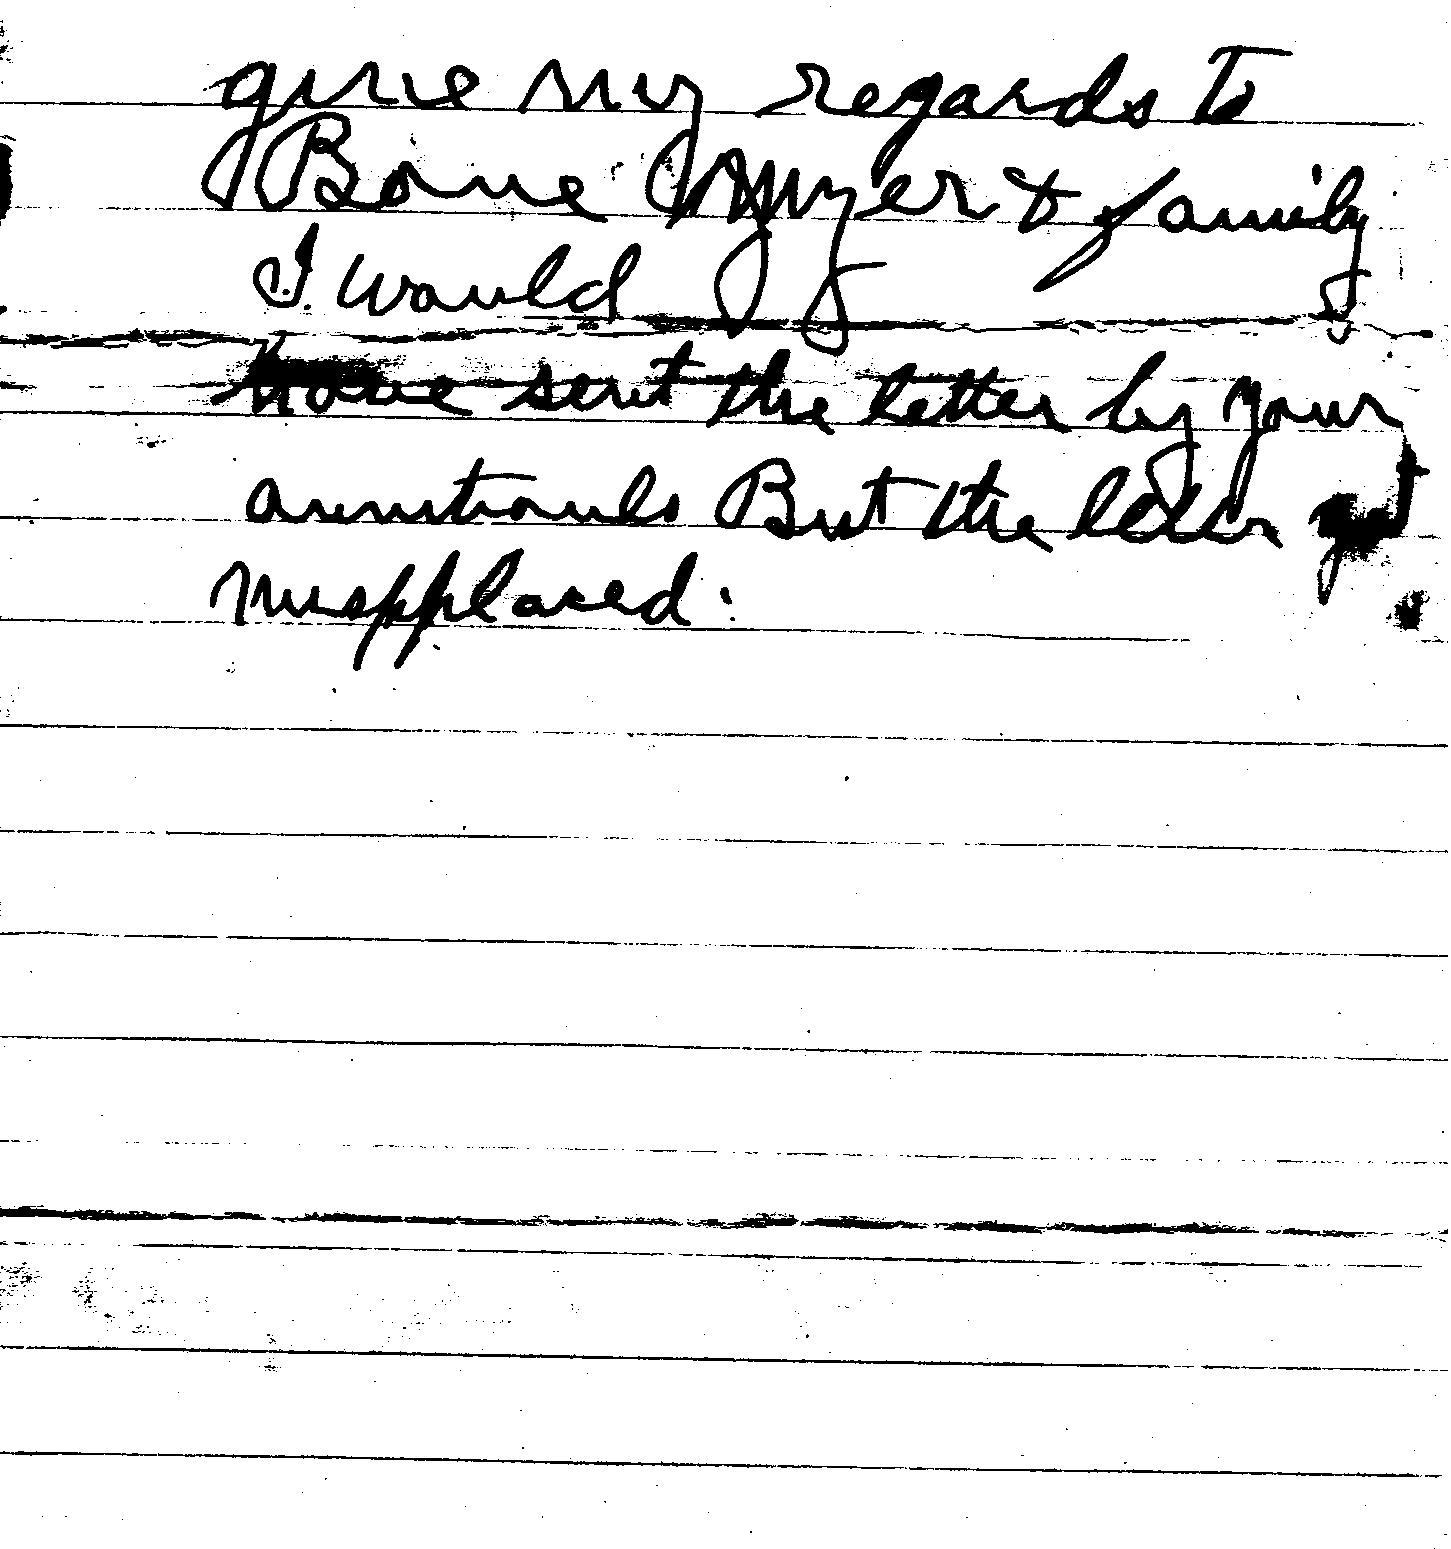 give my regards to
Bone & family
I would
have sent the letter by your
But the letter got
mispplaced.